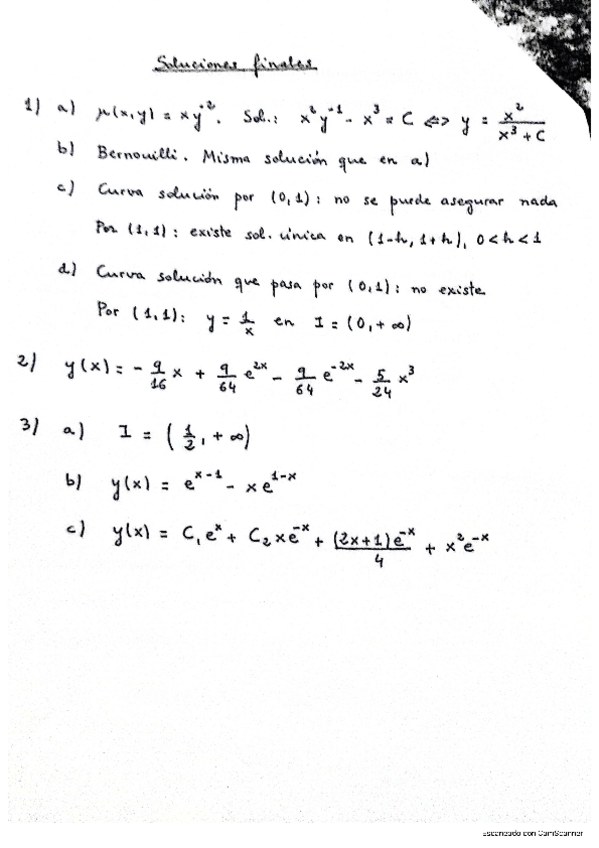 Soluciones finales
1) a) μ(x,y) = xy⁻². Sol.: x²y⁻¹ - x³ = C ⇔ y = x²/(x³ + C)
b) Bernouilli. Misma solución que en a)
c) Curva solución por (0,1): no se puede asegurar nada
Por (1,1): existe sol. única en (1-h, 1+h), 0<h<1
d) Curva solución que pasa por (0,1): no existe
Por (1,1): y = 1/x en I = (0,+∞)
2) y(x) = - 9/16 x + 9/64 e²ˣ - 9/64 e⁻²ˣ - 5/24 x³
3) a) I = (1/2, +∞)
b) y(x) = eˣ⁻¹ - xe¹⁻ˣ
c) y(x) = C₁eˣ + C₂xe⁻ˣ + (2x+1)e⁻ˣ/4 + x²e⁻ˣ
Escaneado con CamScanner